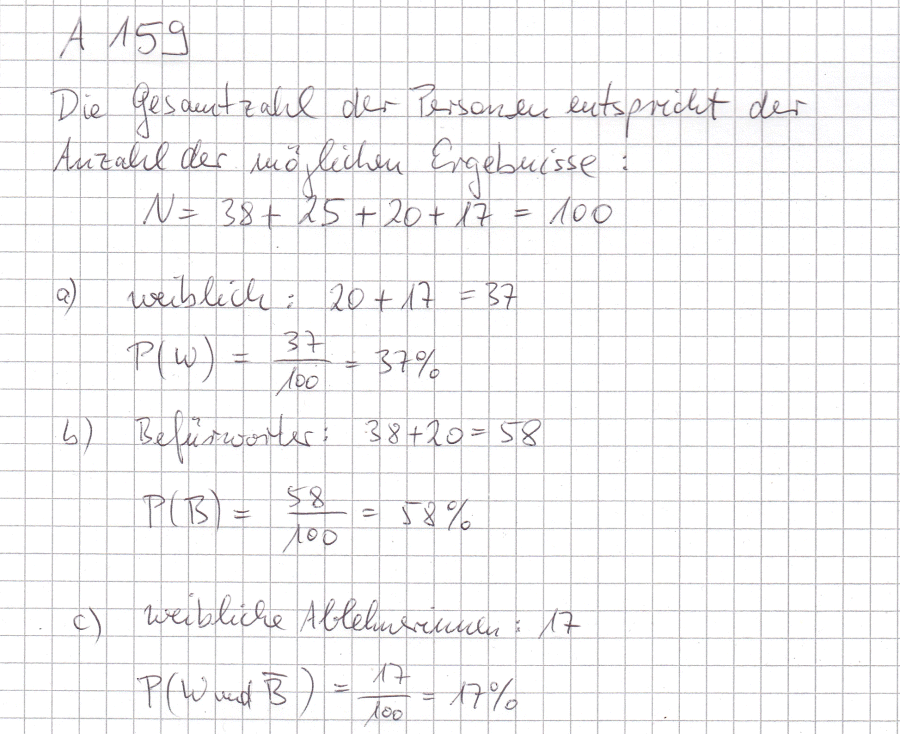 A 159
Die Gesamtzahl der Personen entspricht der
Anzahl der möglichen Ergebnisse:
N = 38 + 25 + 20 + 17 = 100
a) weiblich: 20 + 17 = 37
P(W) = 37/100 = 37%
b) Befürworter: 38 + 20 = 58
P(B) = 58/100 = 58%
c) weibliche Ablehnerinnen: 17
P(W und B̅) = 17/100 = 17%